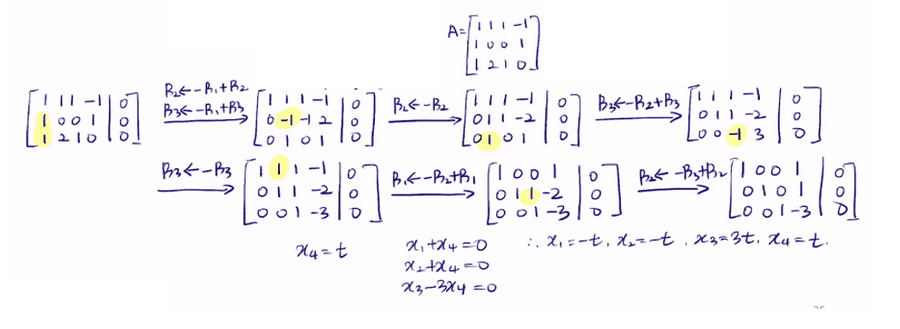 A=[1 1 1 -1
1 0 0 1
1 2 1 0]
[1 1 1 -1 | 0
1 0 0 1 | 0
1 2 1 0 | 0]
R₂←-R₁+R₂
R₃←-R₁+R₃
[1 1 1 -1 | 0
0 -1 -1 2 | 0
0 1 0 1 | 0]
R₂←-R₂
[1 1 1 -1 | 0
0 1 1 -2 | 0
0 1 0 1 | 0]
R₃←-R₂+R₃
[1 1 1 -1 | 0
0 1 1 -2 | 0
0 0 -1 3 | 0]
R₃←-R₃
[1 1 1 -1 | 0
0 1 1 -2 | 0
0 0 1 -3 | 0]
R₁←-R₂+R₁
[1 0 0 1 | 0
0 1 1 -2 | 0
0 0 1 -3 | 0]
R₂←-R₃+R₂
[1 0 0 1 | 0
0 1 0 1 | 0
0 0 1 -3 | 0]
x₄=t
x₁+x₄=0
x₂+x₄=0
x₃-3x₄=0
∴ x₁=-t, x₂=-t, x₃=3t, x₄=t.